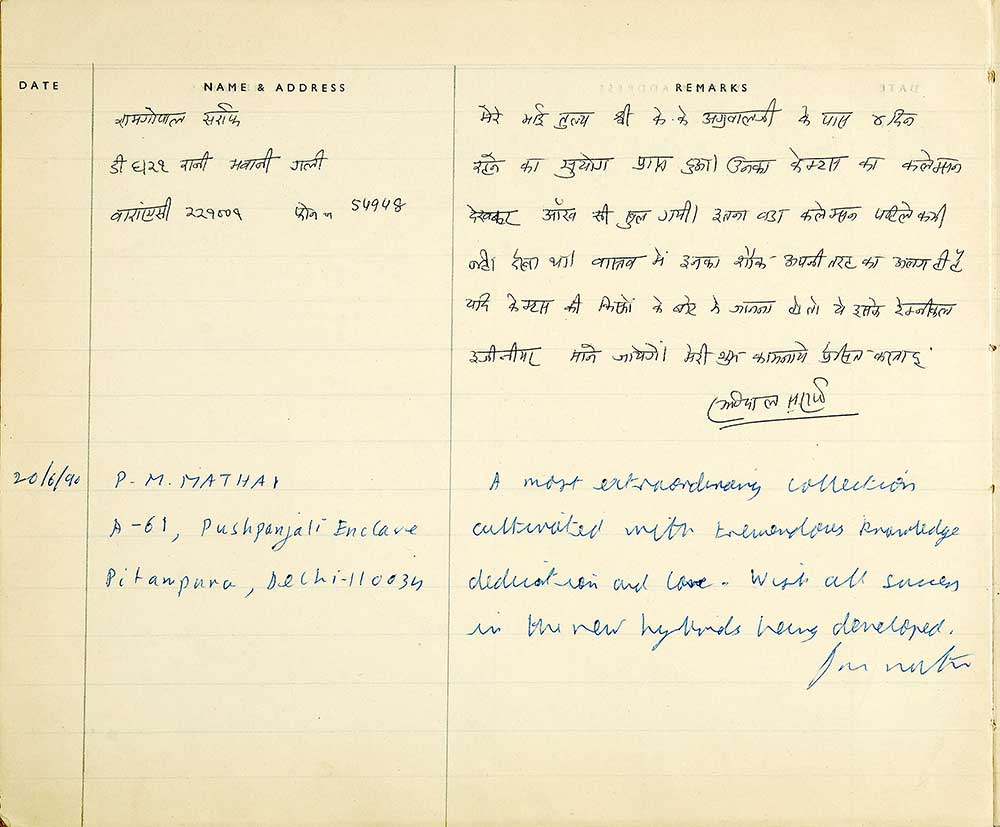 DATE
NAME & ADDRESS
REMARKS
रामगोपाल सर्राफ
डी ६/२१ रानी भवानी गली
वाराणसी २२१००१ फोन नं 54948
मेरे भाई तुल्य श्री के. के अग्रवालजी के पास ४ दिन
रहने का सुयोग प्राप्त हुआ। उनका केक्टस का कलेक्सन
देखकर आँख ही खुल गयी। इतना बडा कलेक्सन पहिले कभी
नही देखा था। वास्तव में इनका शौक अपनी तरह का अलग ही है
यदि केक्टस की किस्मों के बारे में जानना हो तो ये इसके टेक्नीकल
इंजीनीयर माने जायेगें। मेरी शुभ कामनाये प्रेसित करता हूं
20/6/90
P. M. MATHAI
A-61, Pushpanjali Enclave
Pitampura, Delhi-110034
A most extraordinary collection
cultivated with tremendous knowledge
dedication and love. Wish all success
in the new hybrids being developed.